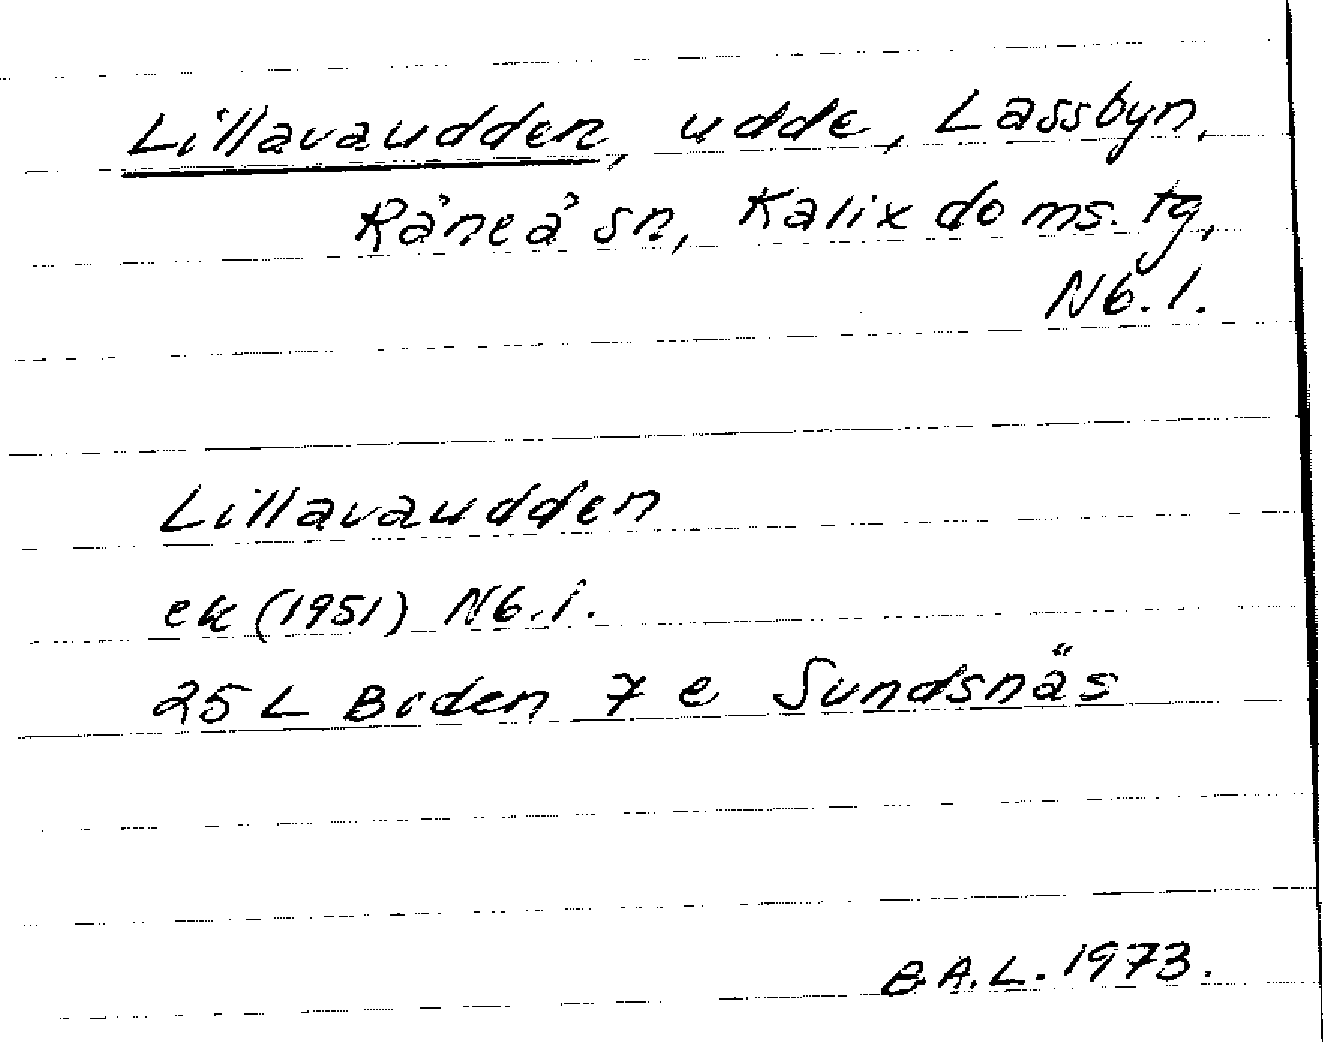 Lillavaudden, udde, Lassbyn,
Råneå sn, Kalix doms. tg,
Nb. l.
Lillavaudden
ek (1951) Nb. l.
25 L Boden 7 e Sundsnäs
B.A.L. 1973.